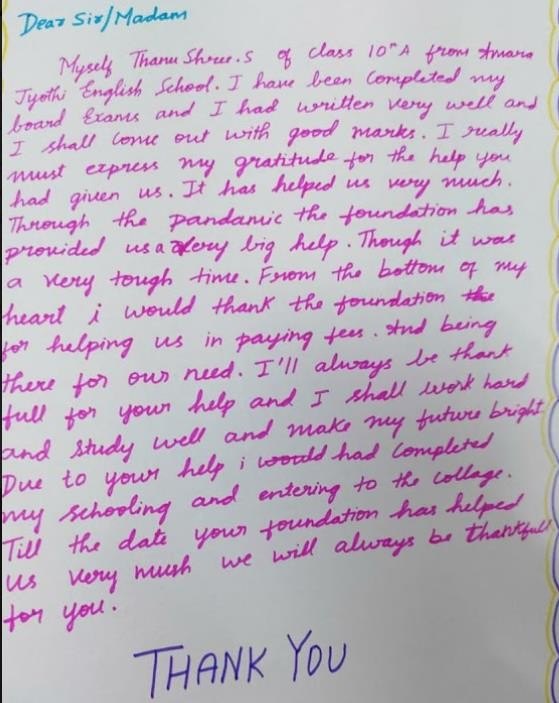 Dear Sir/Madam
Myself Thanu Shree.S of class 10"A from Amara
Jyothi English School. I have been Completed my
board Exams and I had written very well and
I shall come out with good marks. I really
must express my gratitude for the help you
had given us. It has helped us very much.
Through the pandamic the foundation has
provided us a very big help. Though it was
a very tough time. From the bottom of my
heart i would thank the foundation the
for helping us in paying fees. And being
there for our need. I'll always be thank
full for your help and I shall work hard
and study well and make my future bright
Due to your help i would had Completed
my schooling and entering to the collage.
Till the date your foundation has helped
us very mush we will always be thankfull
for you.
THANK YOU